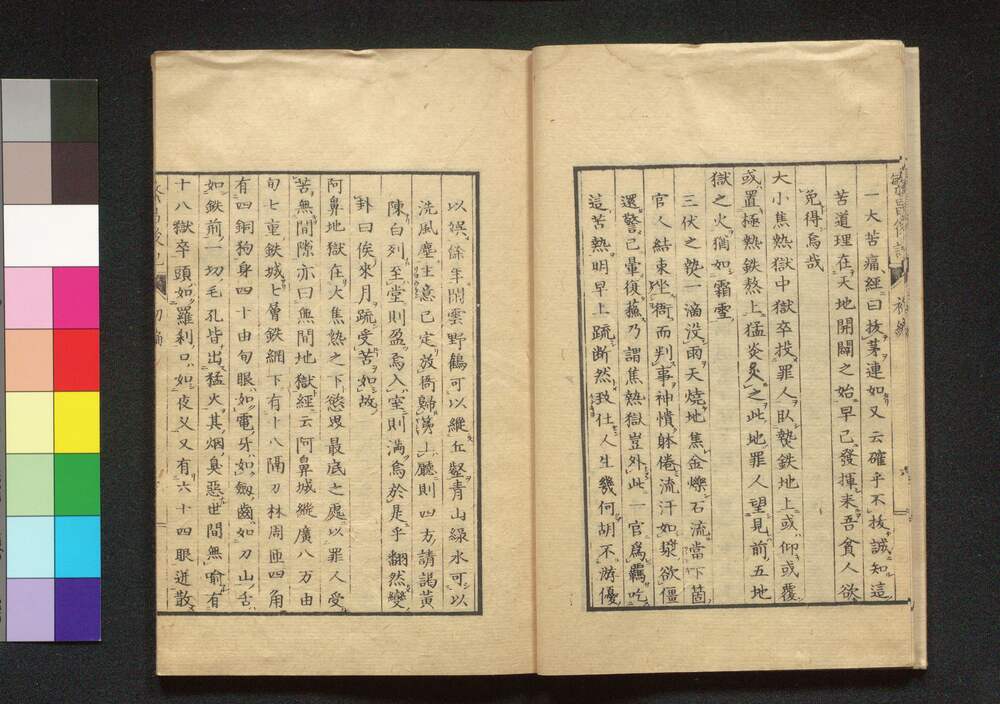 一大苦痛經曰拔茅連如又云確乎不拔誠知這
苦道理在天地開闢之始早已發揮來吾貪人欲
免得焉哉
大小焦熱獄中獄卒投罪人臥熱鉄地上或仰或覆
或置極熱鉄熬上猛炎炙之此地罪人望見前五地
獄之火猶如霜雪
三伏之熱一滴没雨天燒地焦金爍石流當下箇
官人結束坐衙而判事神憒躰倦流汗如漿欲僵
還驚已暈復蘓乃謂焦熱獄豈外此一官爲羈吃
這苦熱明早上疏断然致仕人生幾何胡不游優
以娯餘年閒雲野鶴可以縱丘壑青山緑水可以
洗風塵主意已定放衙歸第上廳則四方請謁黄
陳白列至堂則盈焉入室則滿焉於是乎翻然變
卦曰俟來月疏受苦如故
阿鼻地獄在大焦熱之下慾界最底之處以罪人受
苦無間隙亦曰無間地獄經云阿鼻城縱廣八万由
旬七重鉄城七層鉄網下有十八隔刀林周匝四角
有四銅狗身四十由旬眼如電牙如劔齒如刀山舌
如鉄前一切毛孔皆出猛火其烟臭惡世間無喻有
十八獄卒頭如羅刹口如夜叉又有六十四眼迸散
初編